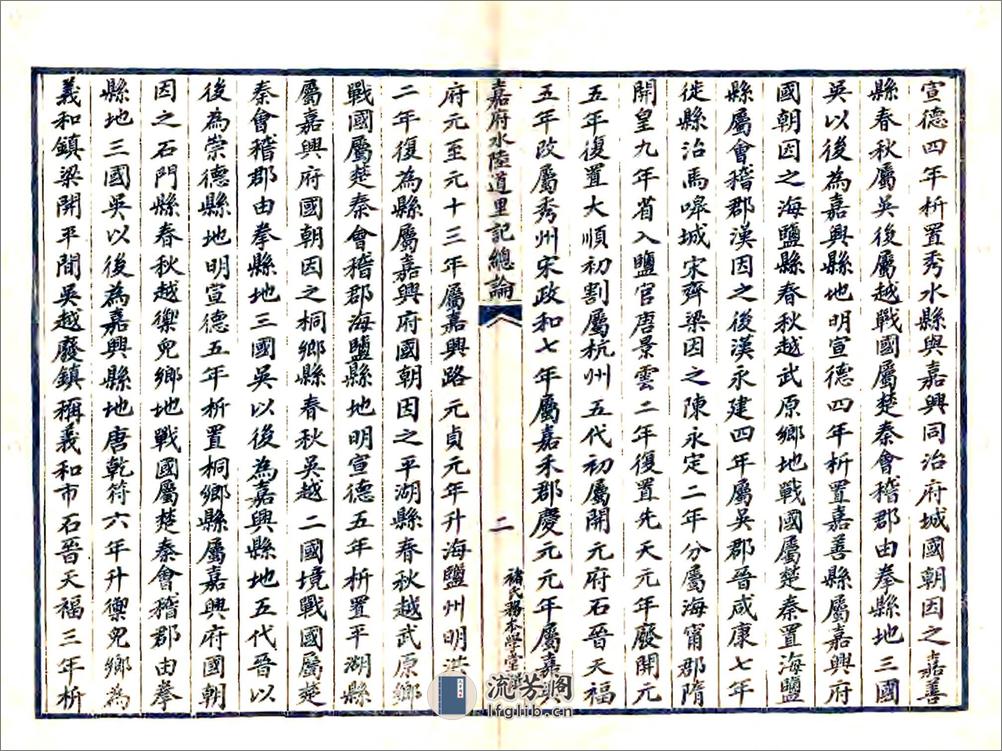 宣德四年析置秀水縣與嘉興同治府城國朝因之嘉善
縣春秋屬吳後屬越戰國屬楚秦會稽郡由拳縣地三國
吳以後為嘉興縣地明宣德四年析置嘉善縣屬嘉興府
國朝因之海鹽縣春秋越武原鄉地戰國屬楚秦置海鹽
縣屬會稽郡漢因之後漢永建四年屬吳郡晉咸康七年
徙縣治馬嘷城宋齊梁因之陳永定二年分屬海甯郡隋
開皇九年省入鹽官唐景雲二年復置先天元年廢開元
五年復置大順初割屬杭州五代初屬開元府石晉天福
五年改屬秀州宋政和七年屬嘉禾郡慶元元年屬嘉興
嘉府水陸道里記總論
二
褚氏務本學堂
府元至元十三年屬嘉興路元貞元年升海鹽州明洪
二年復為縣屬嘉興府國朝因之平湖縣春秋越武原鄉
戰國屬楚秦會稽郡海鹽縣地明宣德五年析置平湖縣
屬嘉興府國朝因之桐鄉縣春秋吳越二國境戰國屬楚
秦會稽郡由拳縣地三國吳以後為嘉興縣地五代晉以
後為崇德縣地明宣德五年析置桐鄉縣屬嘉興府國朝
因之石門縣春秋越禦兒鄉地戰國屬楚秦會稽郡由拳
縣地三國吳以後為嘉興縣地唐乾符六年升禦兒鄉為
義和鎮梁開平間吳越廢鎮稱義和市石晉天福三年析
流芳阁
lfglib.cn